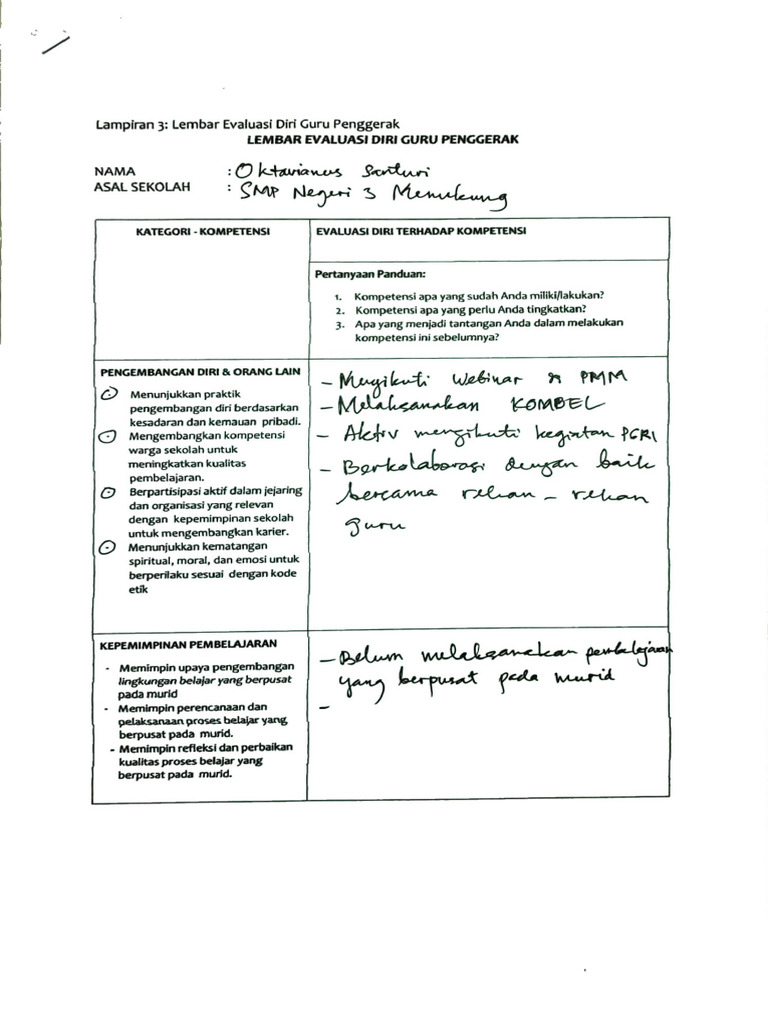 Lampiran 3: Lembar Evaluasi Diri Guru Penggerak
LEMBAR EVALUASI DIRI GURU PENGGERAK
NAMA : Oktavianus
ASAL SEKOLAH : SMP Negeri 3 Menukung
KATEGORI - KOMPETENSI
EVALUASI DIRI TERHADAP KOMPETENSI
Pertanyaan Panduan:
1. Kompetensi apa yang sudah Anda miliki/lakukan?
2. Kompetensi apa yang perlu Anda tingkatkan?
3. Apa yang menjadi tantangan Anda dalam melakukan
kompetensi ini sebelumnya?
PENGEMBANGAN DIRI & ORANG LAIN
Menunjukkan praktik
pengembangan diri berdasarkan
kesadaran dan kemauan pribadi.
Mengembangkan kompetensi
warga sekolah untuk
meningkatkan kualitas
pembelajaran.
Berpartisipasi aktif dalam jejaring
dan organisasi yang relevan
dengan kepemimpinan sekolah
untuk mengembangkan karier.
Menunjukkan kematangan
spiritual, moral, dan emosi untuk
berperilaku sesuai dengan kode
etik
- Mengikuti Webinar PMM
- Melaksanakan KOMBEL
- Aktiv mengikuti kegiatan PGRI
- Berkolaborasi dengan baik
bersama rekan - rekan
guru
KEPEMIMPINAN PEMBELAJARAN
- Memimpin upaya pengembangan
lingkungan belajar yang berpusat
pada murid
- Memimpin perencanaan dan
pelaksanaan proses belajar yang
berpusat pada murid.
- Memimpin refleksi dan perbaikan
kualitas proses belajar yang
berpusat pada murid.
- Belum melaksanakan pembelajaran
yang berpusat pada murid
-